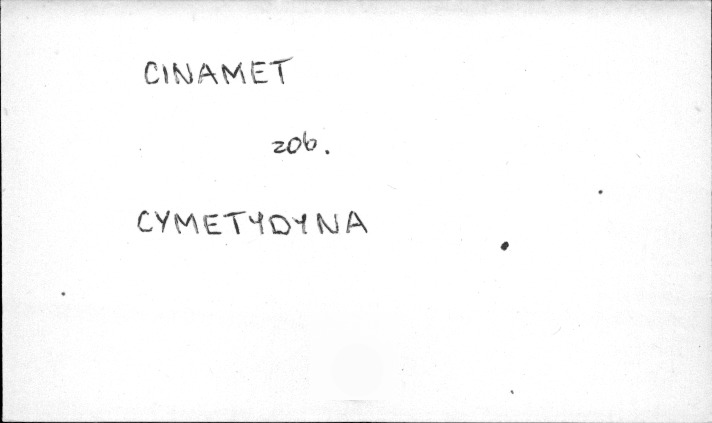 CINAMET
zob.
CYMETYDYNA